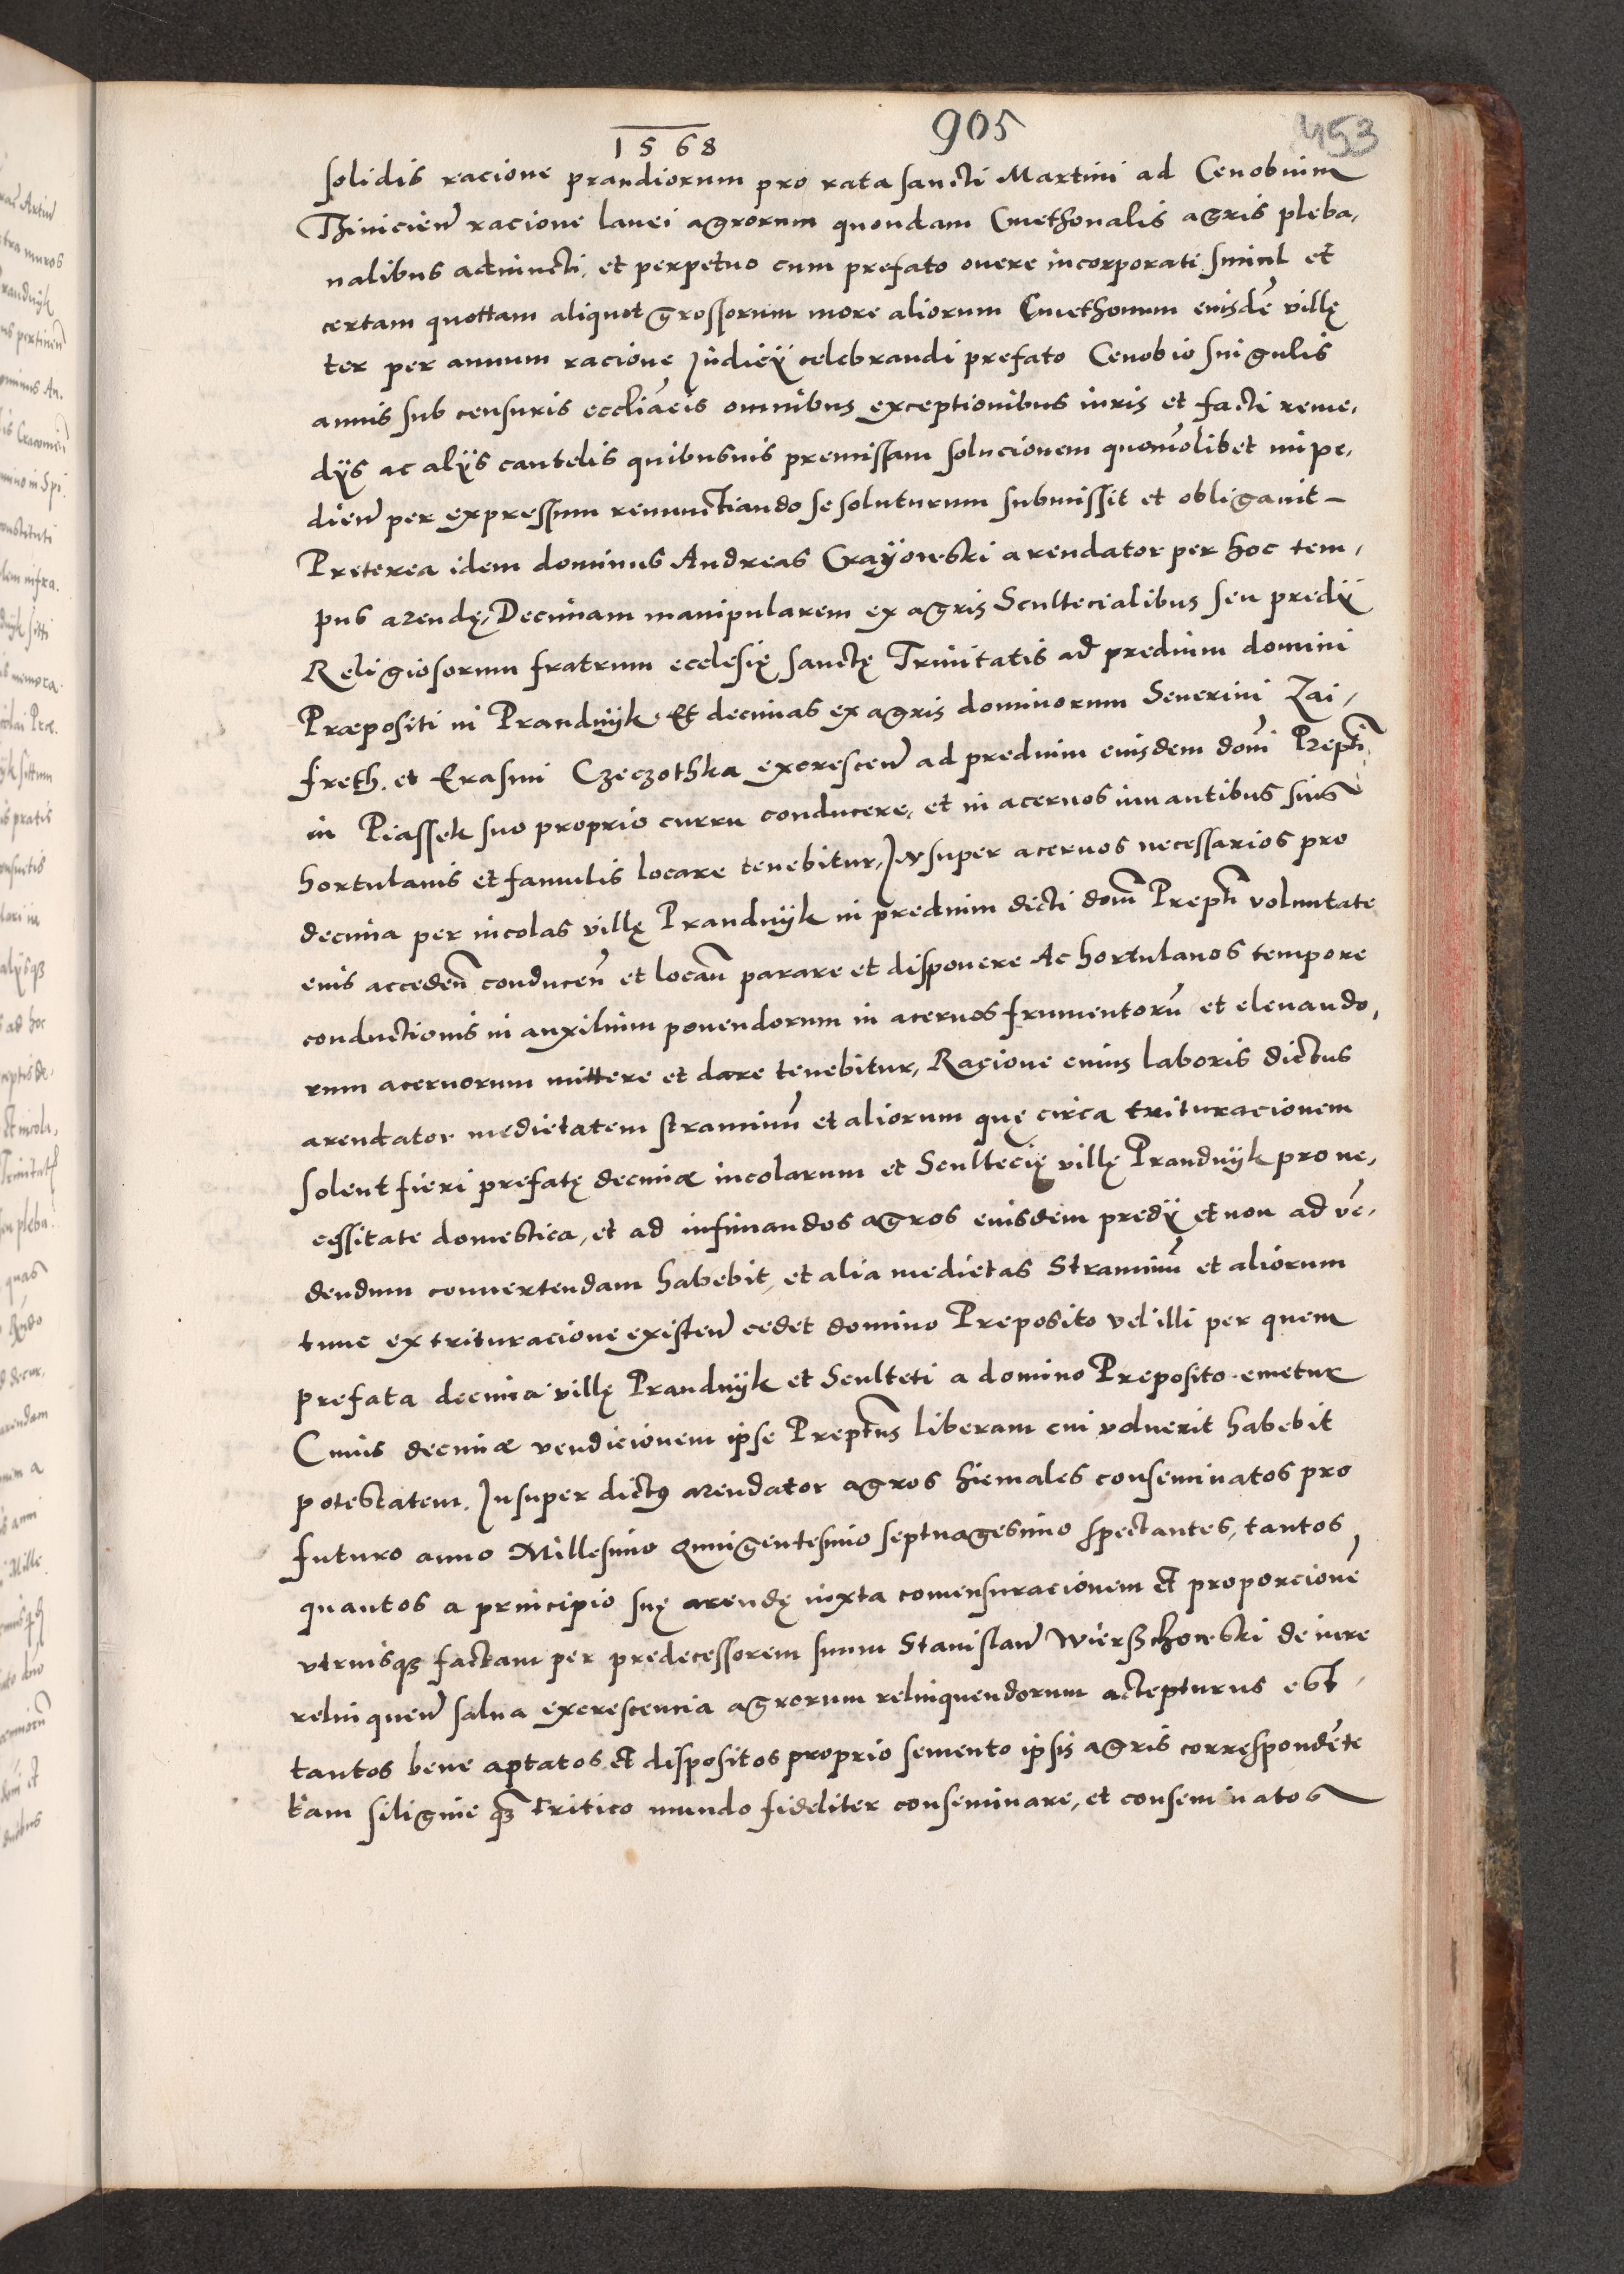 905
453
1568
solidis racione prandiorum pro rata sancti Martini ad Cenobium
Thinicien̄ racione lanei agrorum quondam Cmethonalis agris pleba,
nalibus adiuncti, et perpetuo cum prefato onere incorporati simul et
certam quottam aliquot grossorum more aliorum Cmethonum eiusdē villę
ter per annum racione Judicÿ celebrandi prefato Cenobio singulis
annis sub censuris eccliāeis omnibus exceptionibus iuris et facti reme,
dÿs ac alÿs cautelis quibusuis premissam solucionem quomōlibet impe,
dien̄ per expressum renunctiando se soluturum submissit et obligauit –
Preterea idem dominus Andreas Crayowski arendator per hoc tem,
pus arendę, Decimam manipularem ex agris Scultecialibus seu predÿ
Religiosorum fratrum ecclesię sanctę Trinitatis ad predium domini
Præpositi in Prandnÿk. Et decimas ex agris dominorum Seuerini Zai,
freth. et Erasmi Czeczothka excrescen̄ ad predium eiusdem dom̄i Prepti̅
in Piassek suo proprio curru conducere, et in aceruos iuuantibus suis
hortulanis et famulis locare tenebitur, Insuper aceruos necessarios pro
decima per incolas villę Prandnÿk in predium dicti dom̄ Prept̄i voluntate
eius acceden̄ conducen̄ et locan̄ parare et disponere Ac hortulanos tempore
conductionis in auxilium ponendorum in aceruos frumentorū et eleuando,
rum aceruorum mittere et dare tenebitur, Racione cuius laboris dictus
arendator medietatem straminū et aliorum quę circa trituracionem
solent fieri prefatę decimæ incolarum et Scultecię villę Prandnÿk pro ne,
cessitate domestica, et ad infimandos agros eiusdem predÿ et non ad vē,
dendum conuertendam habebit, et alia medietas Straminū et aliorum
tunc ex trituracione existen̄ cedet domino Preposito vel illi per quem
prefata decima villę Prandnÿk et Sculteti a domino Preposito emetur
Cuius decimæ vendicionem ipse Prept̄us liberam cui voluerit habebit
potestatem. Insuper dictꝰ arendator agros hiemales conseminatos pro
futuro anno Millesimo Quingentesimo septuagesimo spectantes, tantos
quantos a principio suę arendę iuxta comensuracionem et proporcionē
vtriusqꝫ factam per predecessorem suum Stanislaw Wierßchowski de iure
relinquen̄ salua excrescencia agrorum relinquendorum acteptūrus est,
tantos bene aptatos et dispositos proprio semento ipsis agris correspondēte
tam siligine qꝫ tritico mundo fideliter conseminare, et conseminatos